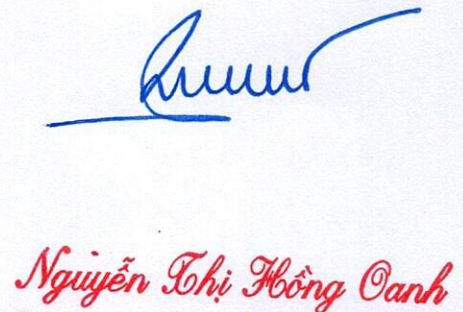 Nguyễn Thị Hồng Oanh